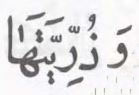 وَ ذُرِّيَّتَهَا